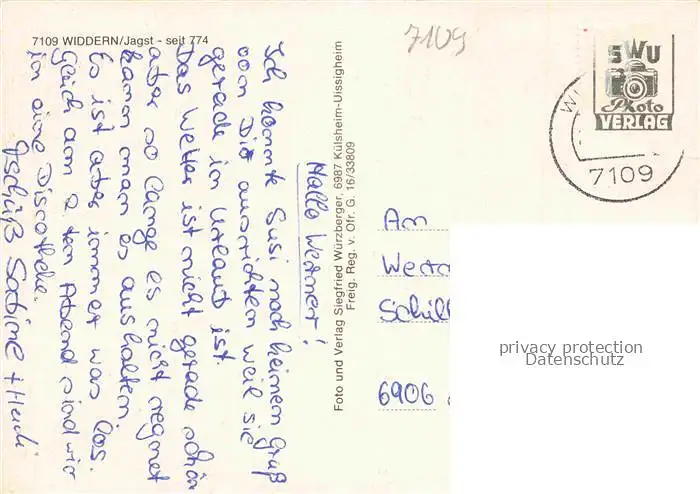 7109 WIDDERN/Jagst - seit 774
7109
Hallo Werner!
Ich konnte Susi noch keinen Gruß
von Dir ausrichten weil sie
gerade in Urlaub ist.
Das Wetter ist nicht gerade schön
aber so lange es nicht regnet
kann man es aushalten.
Es ist aber immer was los.
Gleich am 2. ten Abend sind wir
in eine Discothek.
Tschüß Sabine + Heidi
Foto und Verlag Siegfried Würzberger, 6987 Külsheim-Uissigheim
Freig. Reg. v. Ofr. G. 16/33809
SWU
Photo
VERLAG
7109
An
Schill
6906
privacy protection
Datenschutz